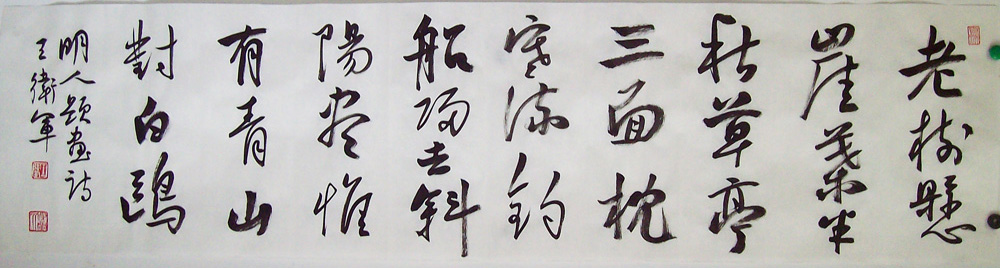 老樹懸
崖葉半
秋草亭
三面枕
寒流釣
船歸去斜
陽盡惟
有青山
對白鷗
明人題畫詩
王衛軍